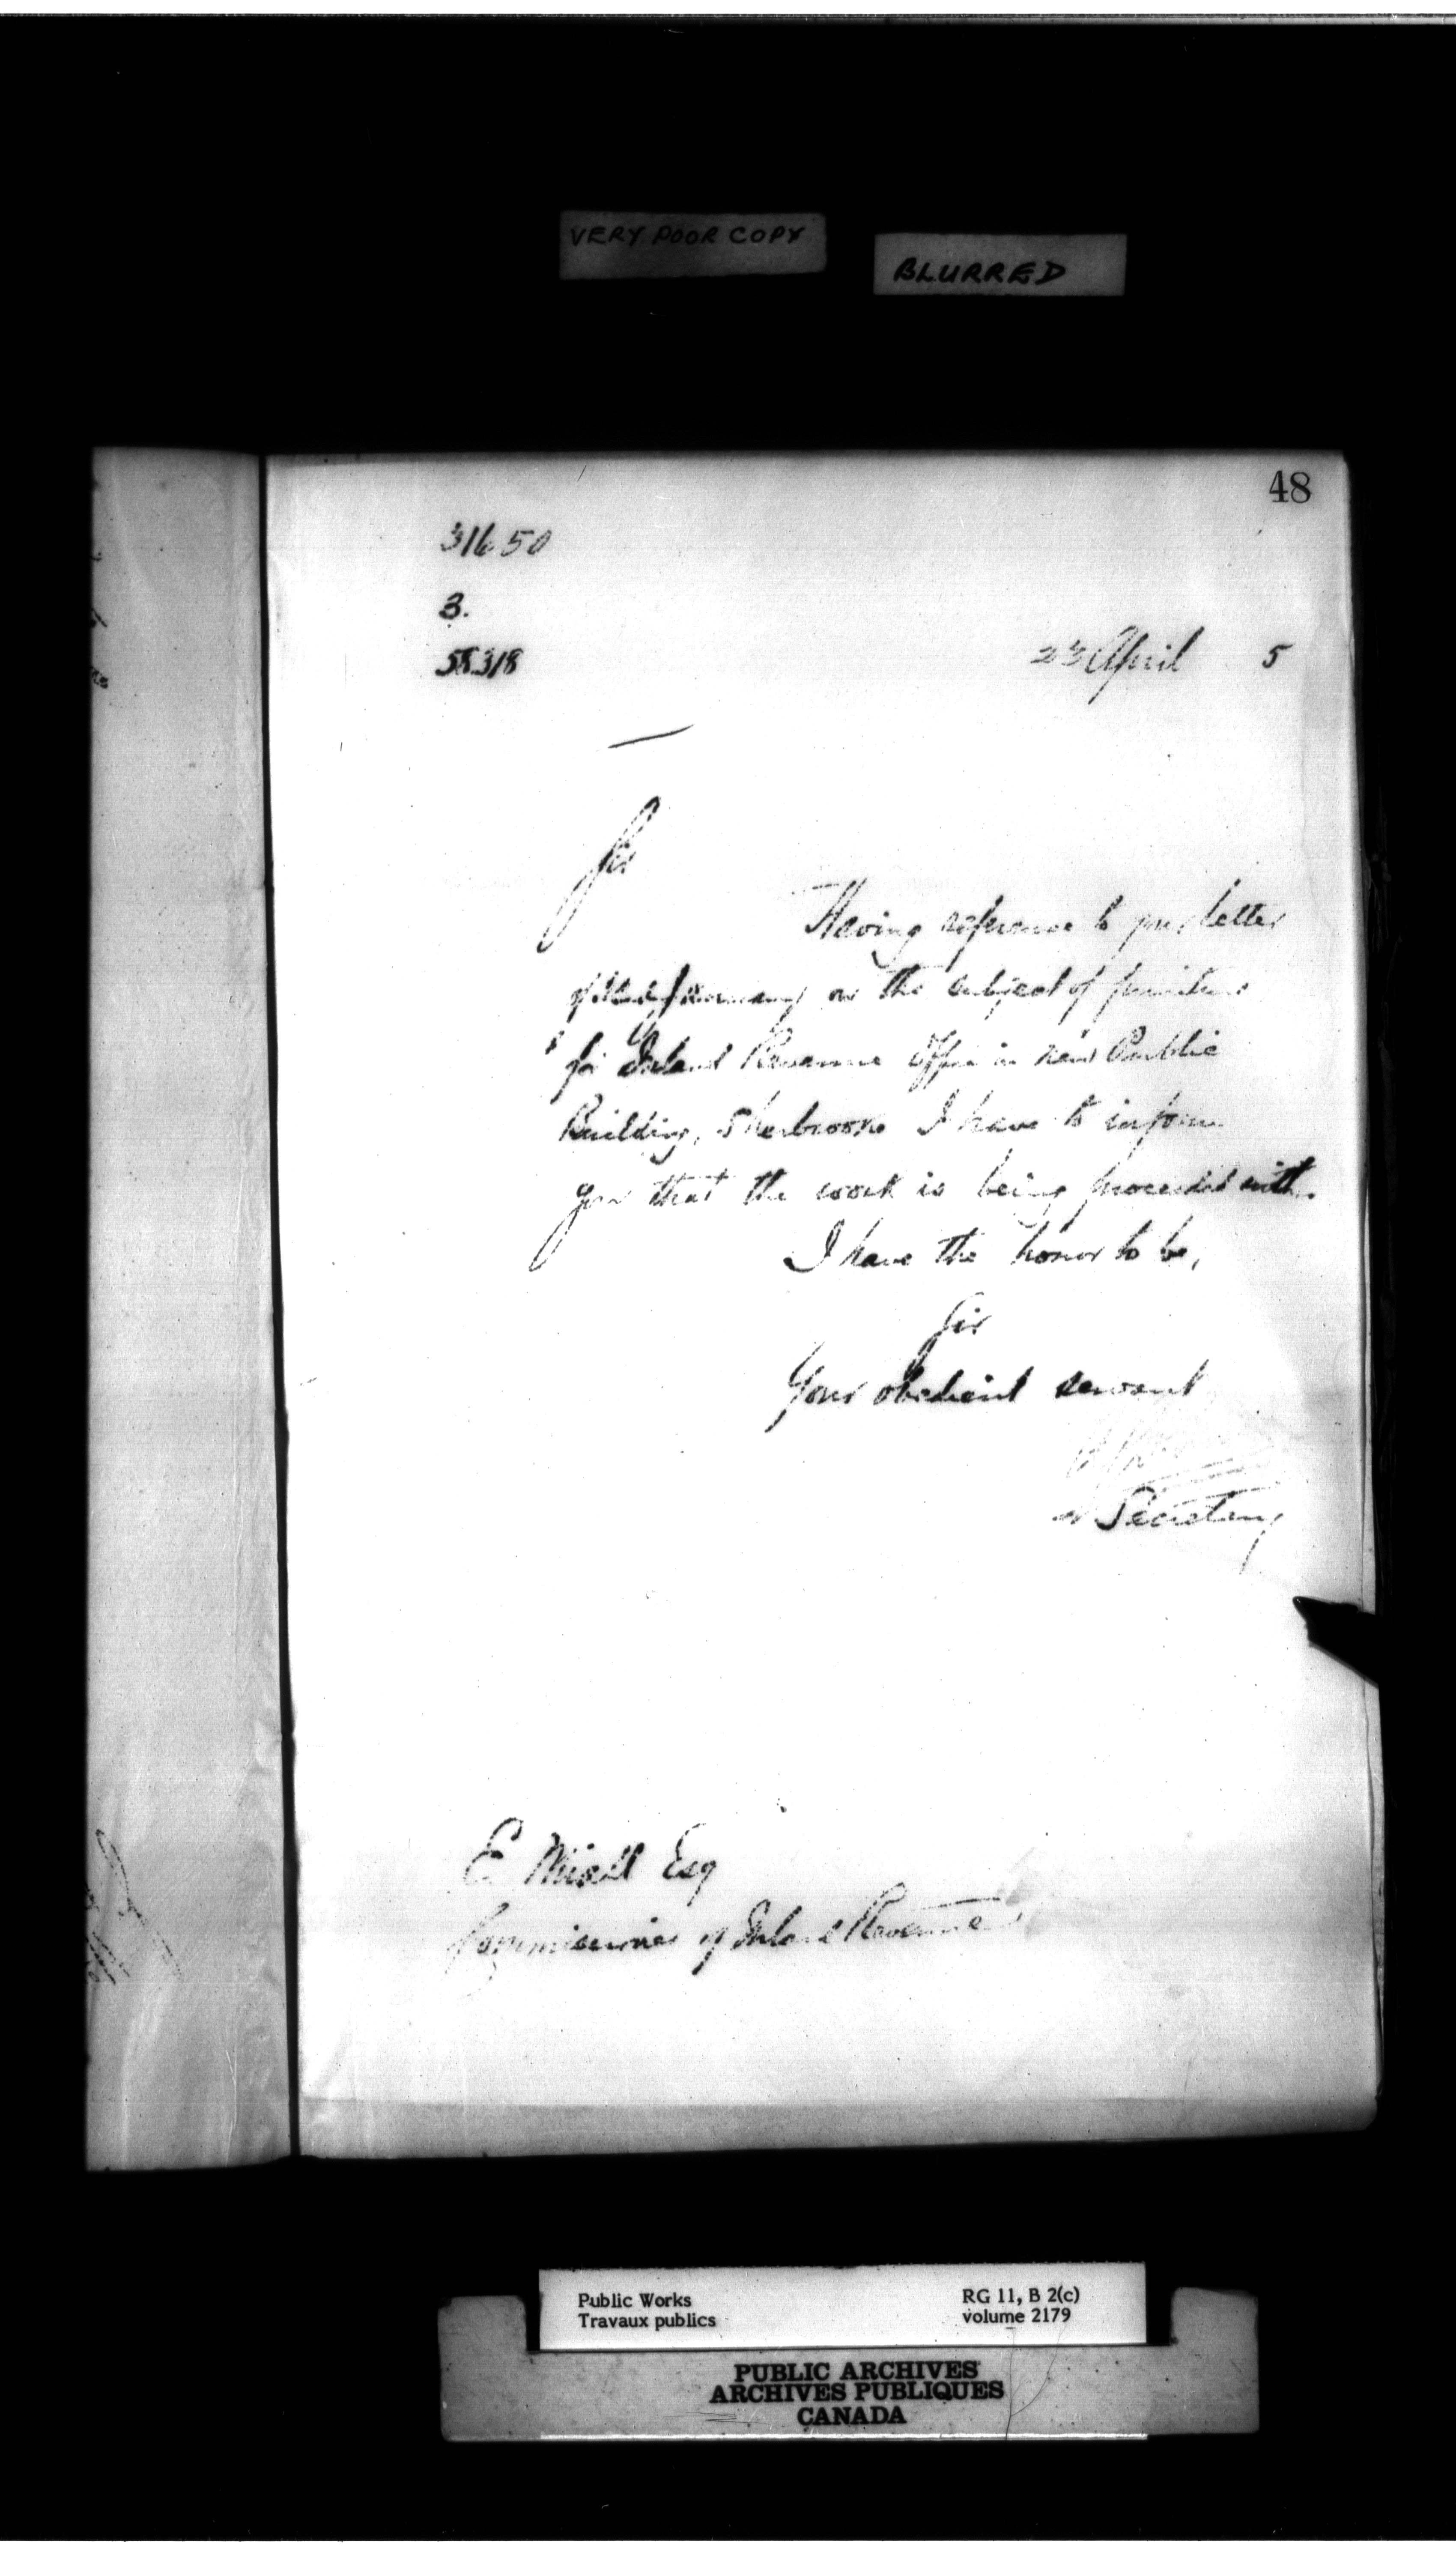 VERY POOR COPY
BLURRED
48
31650
3.
58318
23 April 5
Sir
Having reference to your letter
of January on the subject of furniture
for Inland Revenue Office in new Public
Building, Sherbrooke I have to inform
you that the work is being proceeded with.
I have the honor to be,
Sir
Your obedient servant
Secretary
E Miall Esq
Commissioner of Inland Revenue
Public Works
Travaux publics
RG 11, B 2(c)
volume 2179
PUBLIC ARCHIVES
ARCHIVES PUBLIQUES
CANADA